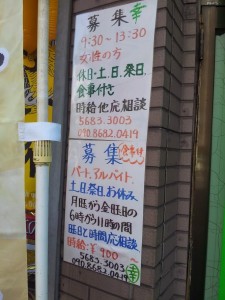 募集 幸
9:30〜13:30
女性の方
休日・土、日、祭日
食事付き
時給他応相談
5683.3003
090.8682.0419
募集 食事付
パート、アルバイト
土、日、祭日、お休み、
月曜から金曜日の
6時から11時の間
曜日と時間応相談
時給:¥900〜
5683.3003
090.8682.0419 幸